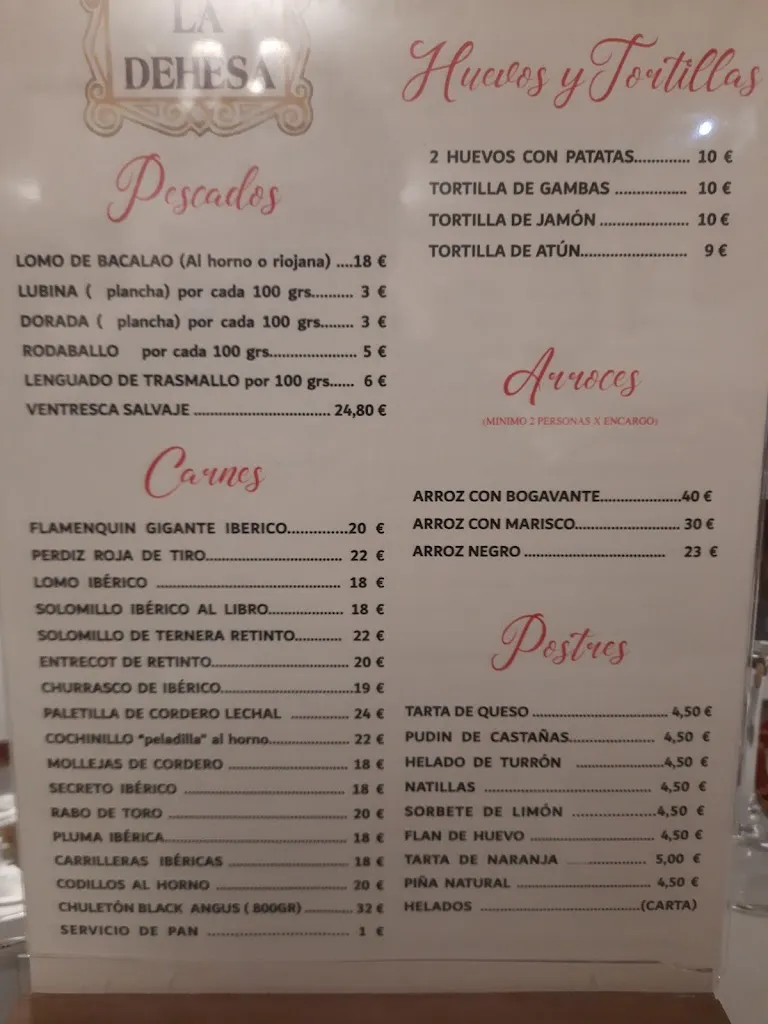 LA
DEHESA
Pescados
LOMO DE BACALAO (Al horno o riojana) ....18 €
LUBINA ( plancha) por cada 100 grs.......... 3 €
DORADA ( plancha) por cada 100 grs........ 3 €
RODABALLO por cada 100 grs..................... 5 €
LENGUADO DE TRASMALLO por 100 grs...... 6 €
VENTRESCA SALVAJE ................................ 24,80 €
Carnes
FLAMENQUIN GIGANTE IBERICO..............20 €
PERDIZ ROJA DE TIRO................................ 22 €
LOMO IBÉRICO ........................................... 18 €
SOLOMILLO IBÉRICO AL LIBRO.................. 18 €
SOLOMILLO DE TERNERA RETINTO........... 22 €
ENTRECOT DE RETINTO................................. 20 €
CHURRASCO DE IBÉRICO................................19 €
PALETILLA DE CORDERO LECHAL .............. 24 €
COCHINILLO "peladilla" al horno.................... 22 €
MOLLEJAS DE CORDERO ............................. 18 €
SECRETO IBÉRICO ........................................ 18 €
RABO DE TORO ............................................ 20 €
PLUMA IBÉRICA............................................. 18 €
CARRILLERAS IBÉRICAS ............................. 18 €
CODILLOS AL HORNO ................................. 20 €
CHULETÓN BLACK ANGUS ( 800GR) ............ 32 €
SERVICIO DE PAN ..................................... 1 €
Huevos y Tortillas
2 HUEVOS CON PATATAS............. 10 €
TORTILLA DE GAMBAS ................. 10 €
TORTILLA DE JAMÓN ..................... 10 €
TORTILLA DE ATÚN.......................... 9 €
Arroces
(MINIMO 2 PERSONAS X ENCARGO)
ARROZ CON BOGAVANTE....................40 €
ARROZ CON MARISCO.......................... 30 €
ARROZ NEGRO ................................... 23 €
Postres
TARTA DE QUESO ................................. 4,50 €
PUDIN DE CASTAÑAS..................... 4,50 €
HELADO DE TURRÓN .....................4,50 €
NATILLAS ........................................ 4,50 €
SORBETE DE LIMÓN .....................4,50 €
FLAN DE HUEVO ............................... 4,50 €
TARTA DE NARANJA .................... 5,00 €
PIÑA NATURAL ................................. 4,50 €
HELADOS .......................................(CARTA)